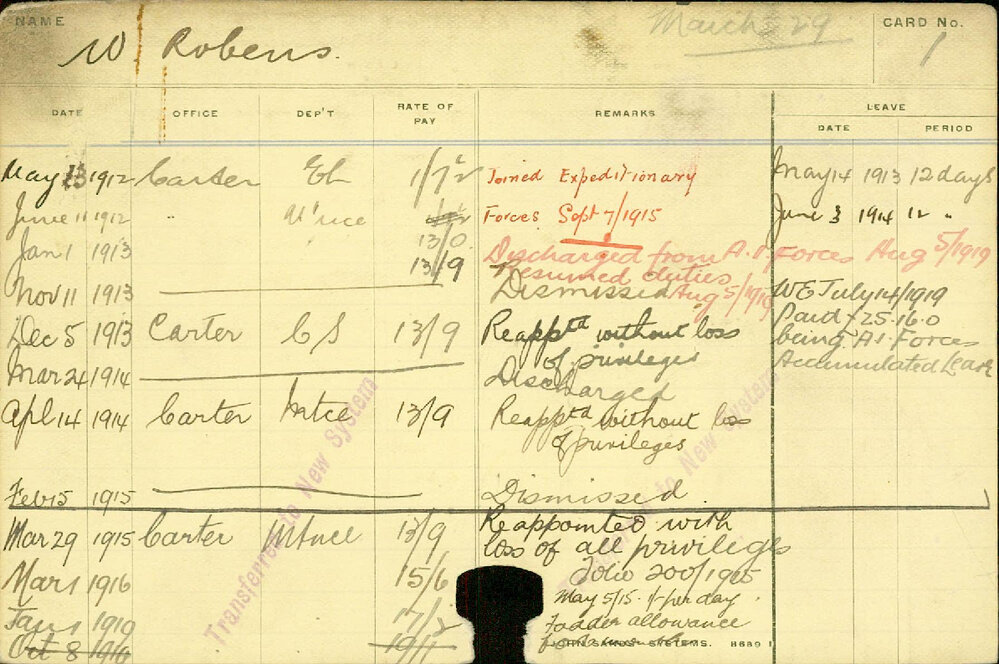 NAME
W Robens.
March 29
CARD No.
1
DATE OFFICE DEP'T RATE OF PAY REMARKS LEAVE
DATE PERIOD
May 13 1912 Carter 1/7½ Joined Expeditionary May 14 1913 12 days
June 11 1912 " M'nce Forces Sept 7/1915 June 3 1914 12 "
Jan 1 1913 13/0 Discharged from A.I. Forces Aug 5/1919
13/9 Resumed duties Aug 5/1919
Nov 11 1913 Dismissed WE July 14/1919
Dec 5 1913 Carter CS 13/9 Reapptd without loss of privileges
Paid £25.16.0
being A.I. Forces
Accumulated Leave
Mar 24 1914 Discharged
Apl 14 1914 Carter Mtce 13/9 Reapptd without loss
of privileges
Feb 15 1915 Dismissed
Mar 29 1915 Carter Mtnce 13/9 Reappointed with
loss of all privileges
Mar 1 1916 15/6 Folio 200/1915
May 5/15 1/- per day
Jan 1 1919 17/2 Fodder allowance
Oct 8 1919
SYSTEMS. H689
Transferred to New System
Transferred to New System